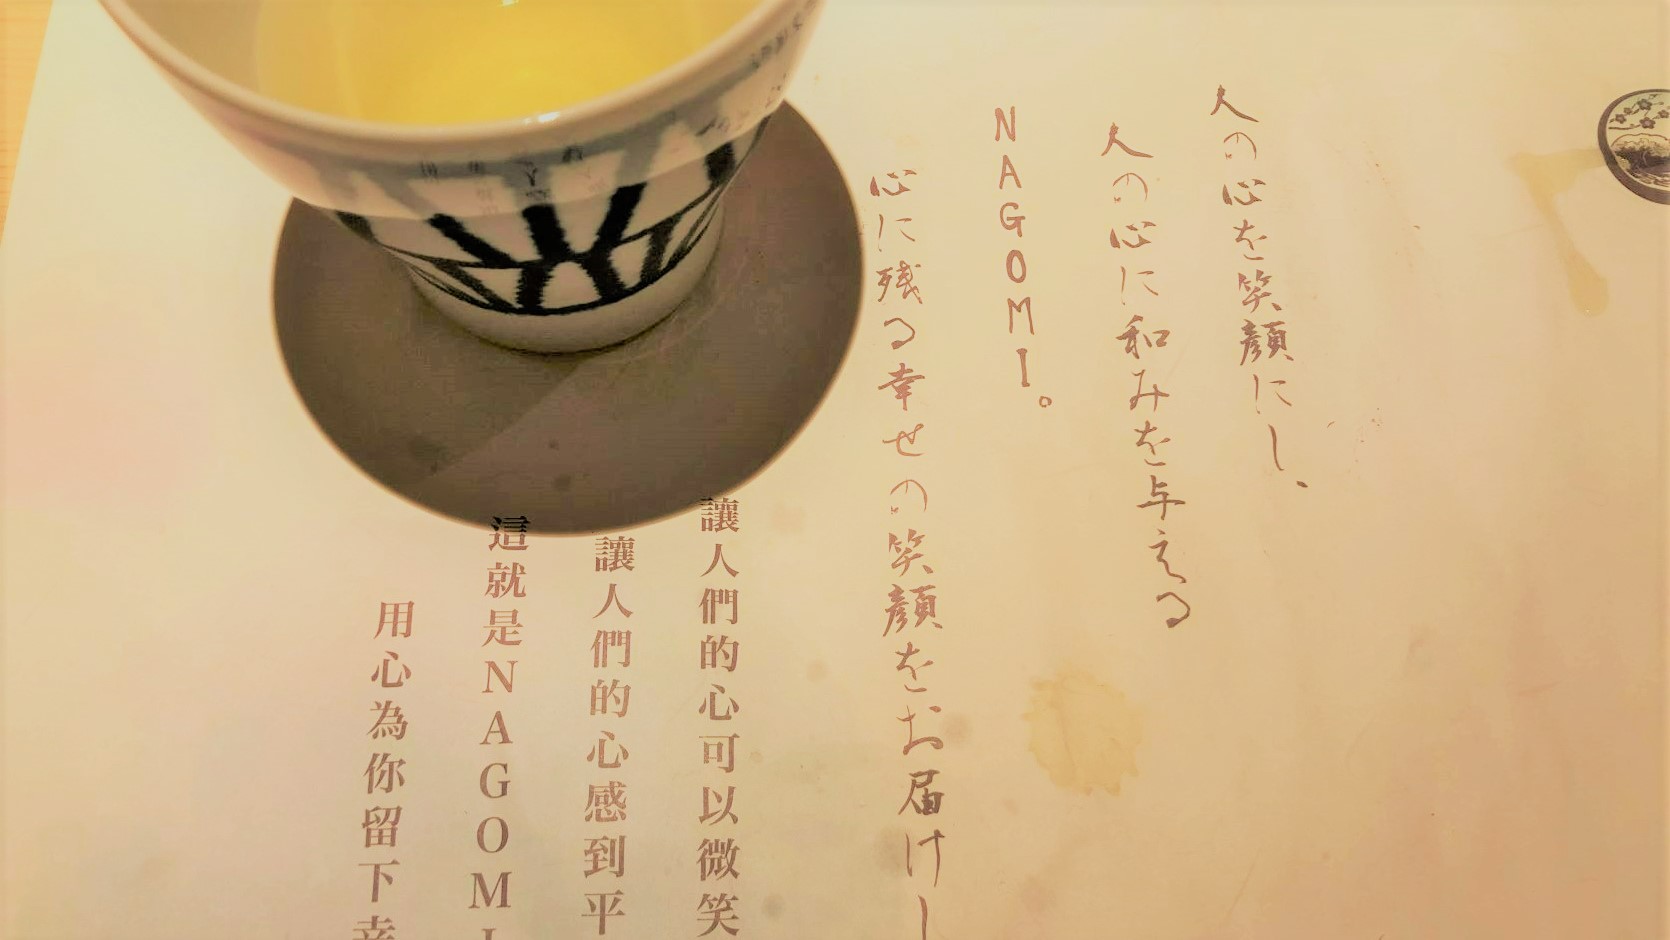 人の心を笑顔にし、
人の心に和みを与える
NAGOMI。
心に残る幸せの笑顔をお届けし
讓人們的心可以微笑
讓人們的心感到平
這就是NAGOMI
用心為你留下幸